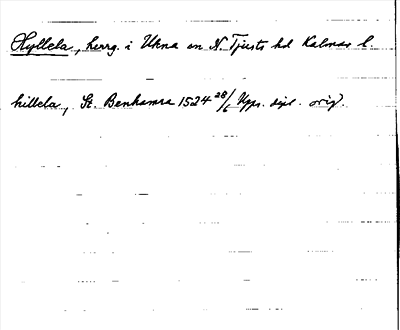 Hyllela, herrg. i Ukna sn N. Tjusts hd Kalmar l.
hillela, St. Benhamra 1524 28/6 Upps. dipl. orig.